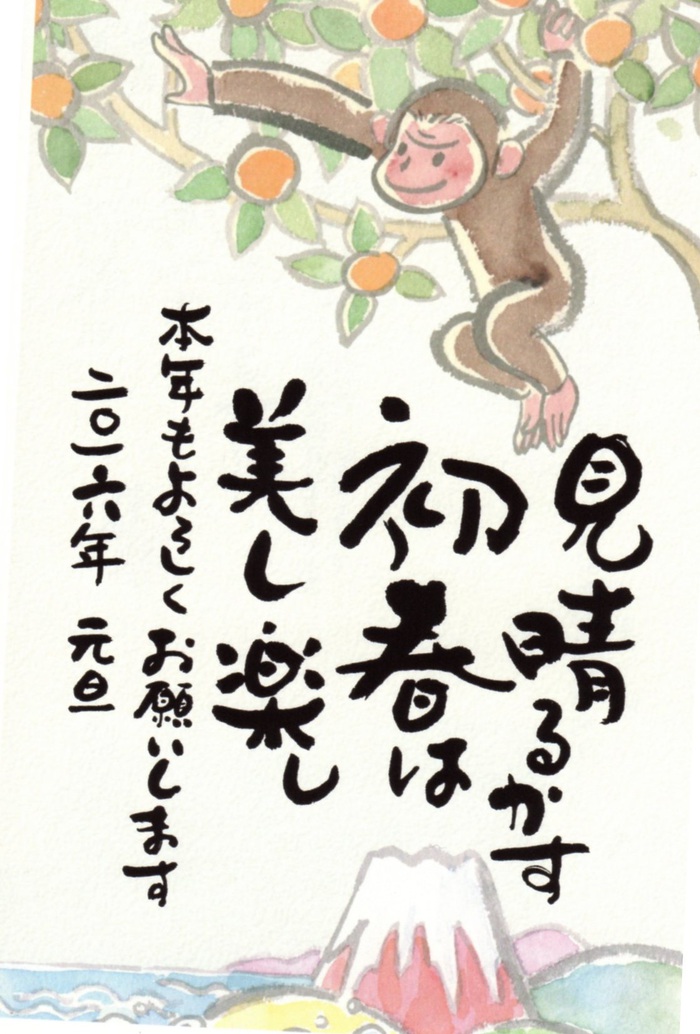 見晴るかす
初春は
美し楽し
本年もよろしくお願いします
二〇一六年 元旦